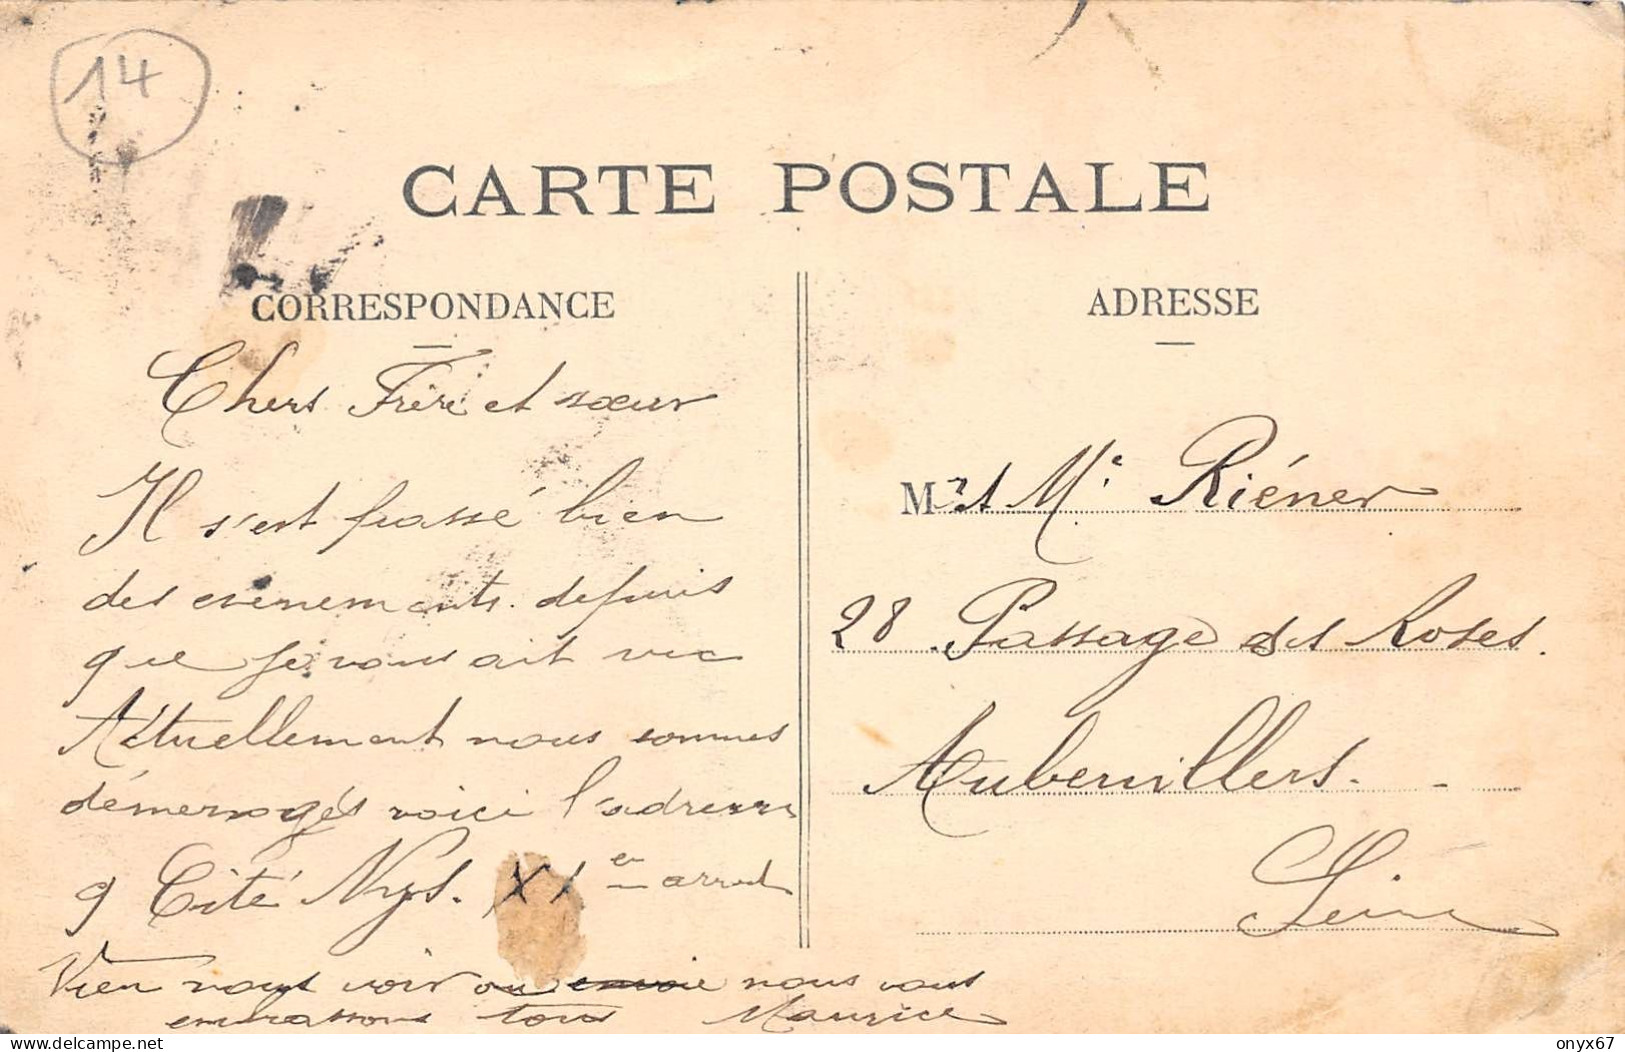 14
CARTE POSTALE
CORRESPONDANCE
Chers Frère et sœur
Il s'est passé bien
des evenements. depuis
que je vous ait vue
Actuellement nous sommes
démenagés voici l'adresse
9 Cité Nys. XI en arrod
Vien nous voir ou envoie nous vous
embrassons tous Maurice
ADRESSE
Mr et Me Riéner
28 Passage des Roses.
Aubervillers.
Seine
delcampe.net
onyx67